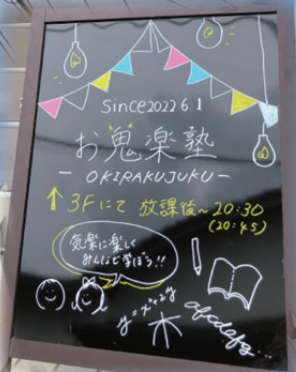 Since2022.6.1
お鬼楽塾
- OKIRAKUJUKU -
↑ 3Fにて 放課後~20:30
(20:45)
気楽に楽しく
みんなで学ぼう!!
y=x²+2y
木
abcdefg...